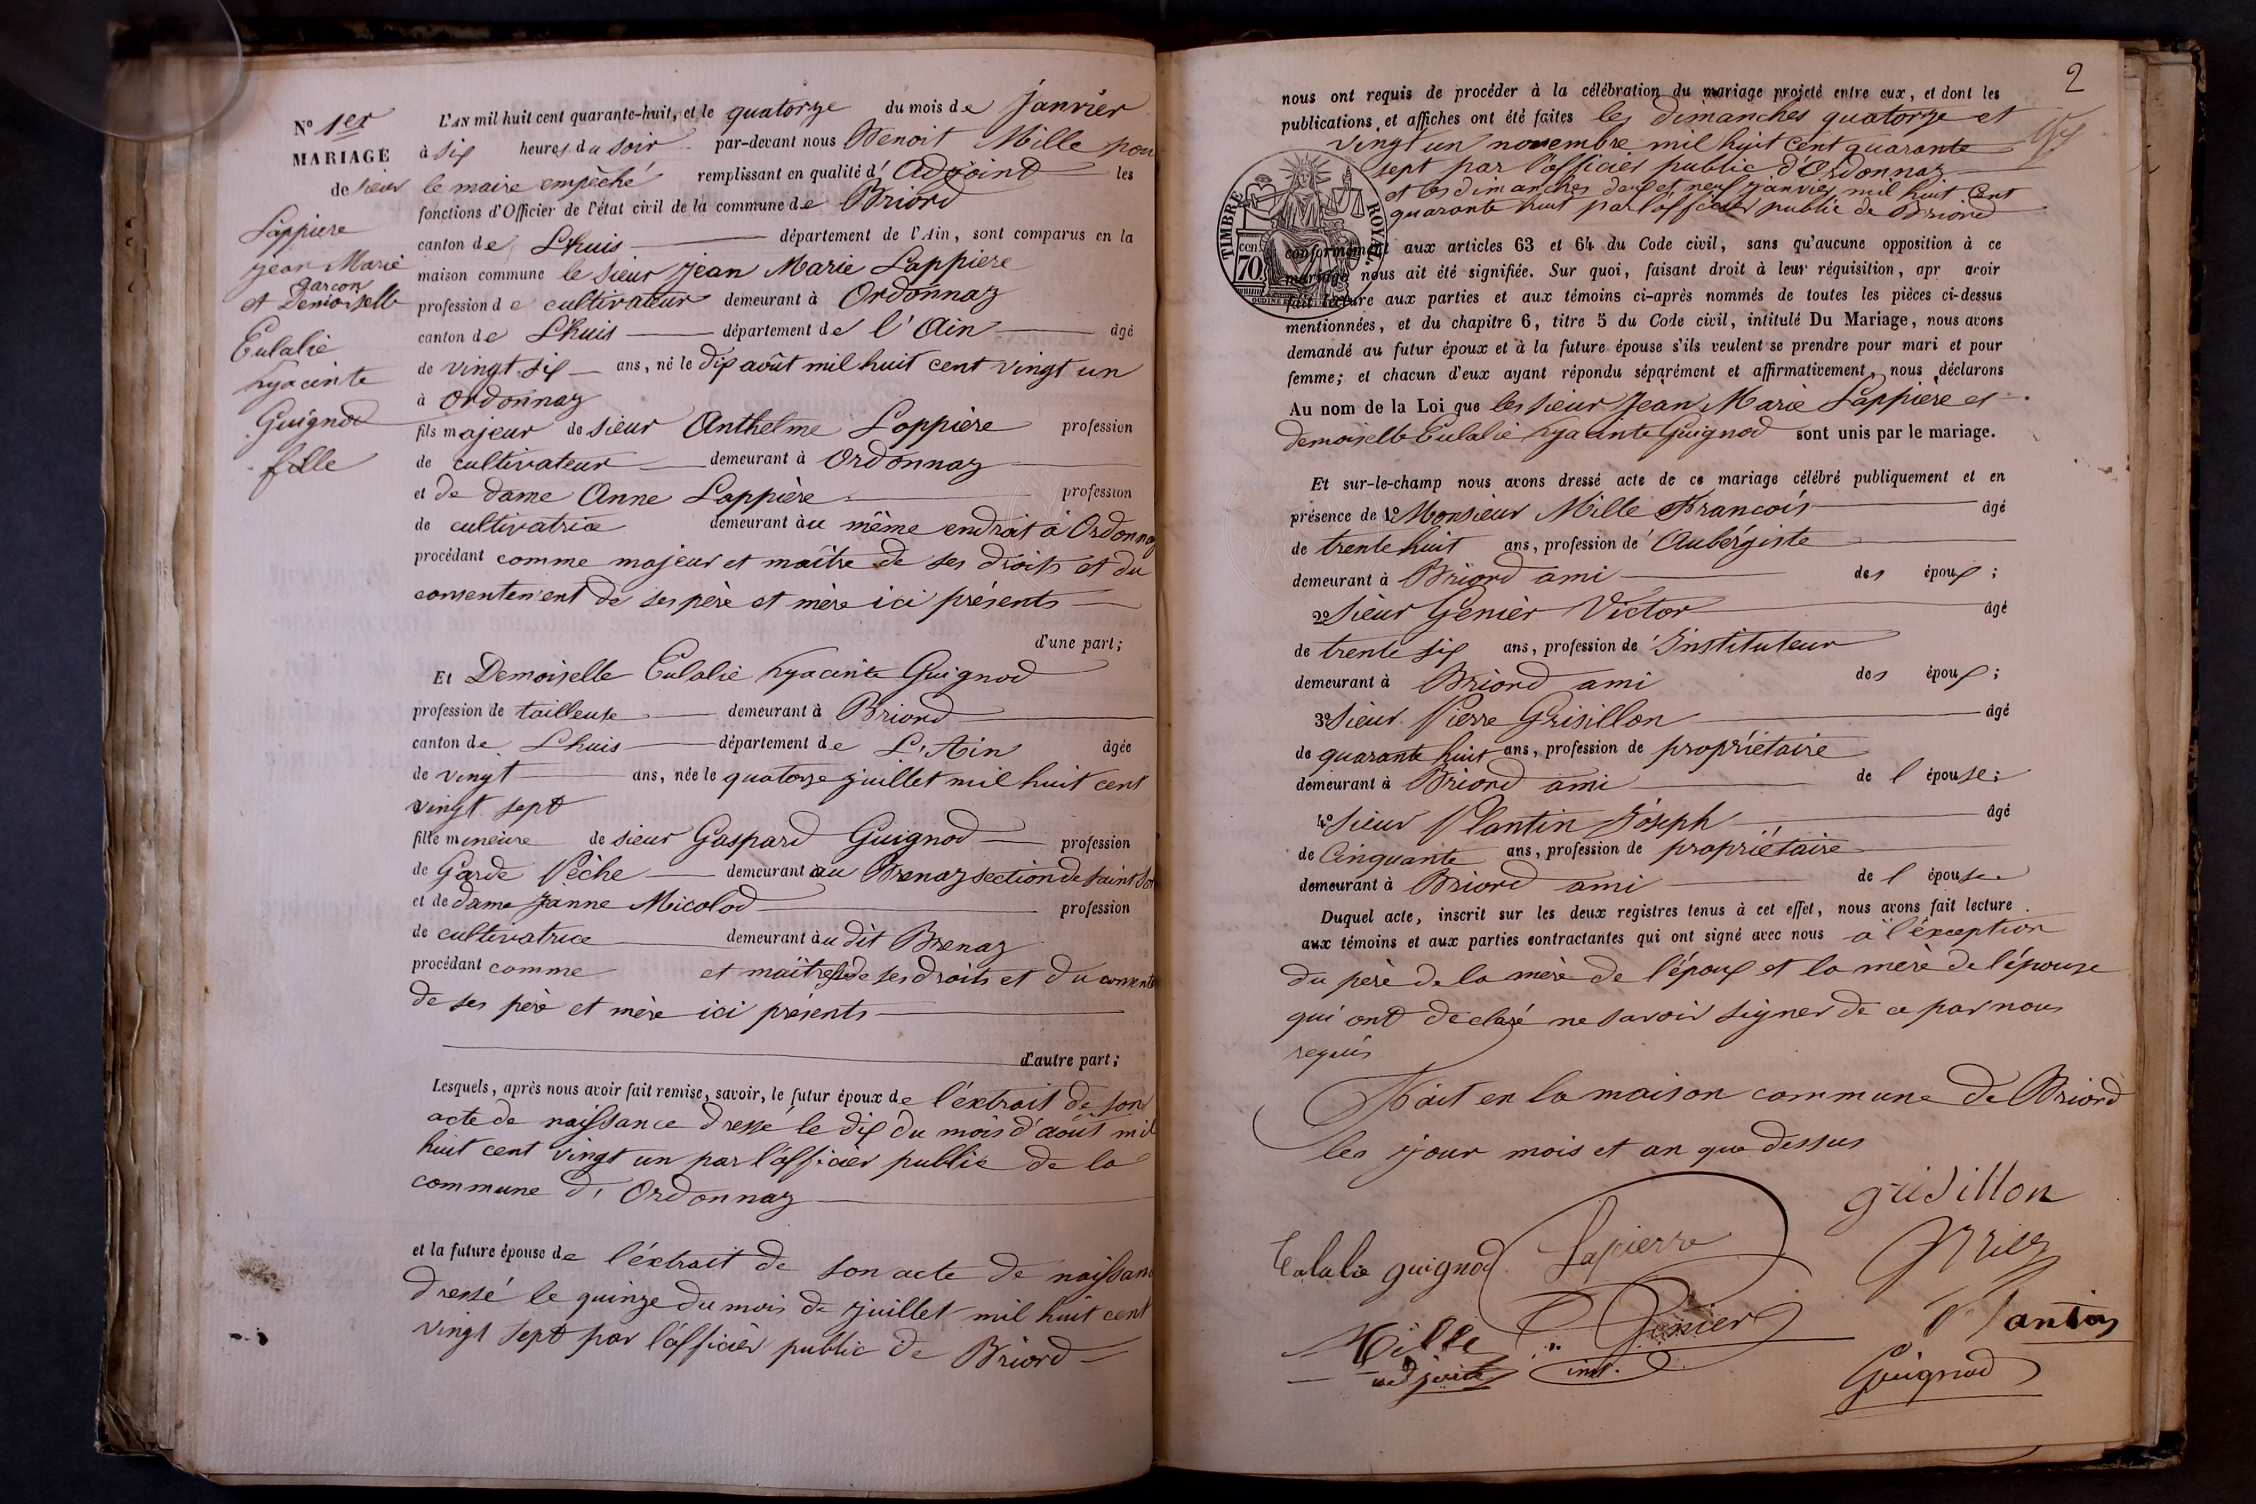 N° 1er
MARIAGE
de sieur
Lappiere
Jean Marie
garçon
et Demoiselle
Eulalie
hyacinte
Guignod
fille
L'AN mil huit cent quarante-huit, et le quatorze du mois de Janvier
à six heures du soir par-devant nous Benoit Mille pour
le maire empêché remplissant en qualité d' Adjoint les
fonctions d'Officier de l'état civil de la commune de Briord
canton de Lhuis département de l'Ain, sont comparus en la
maison commune le sieur Jean Marie Lappiere
profession de cultivateur demeurant à Ordonnaz
canton de Lhuis département de l'Ain âgé
de vingt six ans, né le dix août mil huit cent vingt un
à Ordonnaz
fils majeur de sieur Anthelme Lappière profession
de cultivateur demeurant à Ordonnaz
et de dame Anne Lappière profession
de cultivatrice demeurant au même endroit à Ordonnaz
procédant comme majeur et maître de ses droits et du
consentement de ses père et mère ici présents
d'une part;
Et Demoiselle Eulalie hyacinte Guignod
profession de tailleuse demeurant à Briord
canton de Lhuis département de L'Ain âgée
de vingt ans, née le quatorze juillet mil huit cent
vingt sept
fille mineure de sieur Gaspard Guignod profession
de Garde Pêche demeurant au Brenaz section de saint
et de dame Janne Micolod profession
de cultivatrice demeurant au dit Brenaz
procédant comme et maîtresse de ses droits et du
de ses père et mère ici présents
d'autre part;
Lesquels, après nous avoir fait remise, savoir, le futur époux de l'extrait de son
acte de naissance dressé le dix du mois d'août mil
huit cent vingt un par l'officier public de la
commune d'Ordonnaz
et la future épouse de l'éxtrait de son acte de naissan
dressé le quinze du mois de juillet mil huit cent
vingt sept par l'officier public de Briord
2
nous ont requis de procéder à la célébration du mariage projeté entre eux, et dont les
publications et affiches ont été faites les dimanches quatorze et
vingt un novembre mil huit cent quarante
sept par l'officier public d'Ordonnaz
et les dimanches deux et neuf janvier mil huit Cent
quarante huit par l'officier public de Briord
TIMBRE ROYAL
70 cen
conformément aux articles 63 et 64 du Code civil, sans qu'aucune opposition à ce
mariage nous ait été signifiée. Sur quoi, faisant droit à leur réquisition, apr avoir
fait lecture aux parties et aux témoins ci-après nommés de toutes les pièces ci-dessus
mentionnées, et du chapitre 6, titre 5 du Code civil, intitulé Du Mariage, nous avons
demandé au futur époux et à la future épouse s'ils veulent se prendre pour mari et pour
femme; et chacun d'eux ayant répondu séparément et affirmativement, nous déclarons
Au nom de la Loi que les sieur Jean Marie Lappiere et
demoiselle Eulalie hyacinte Guignod sont unis par le mariage.
Et sur-le-champ nous avons dressé acte de ce mariage célébré publiquement et en
présence de 1° Monsieur Mille Francois âgé
de trente huit ans, profession de Aubérgiste
demeurant à Briord ami des époux;
2° Sieur Genièr Victor âgé
de trente six ans, profession de Instituteur
demeurant à Briord ami des époux;
3° Sieur Pierre Grisillon âgé
de quarante huit ans, profession de propriétaire
demeurant à Briord ami de l'épouse;
4° Sieur Plantin Joseph âgé
de Cinquante ans, profession de propriétaire
demeurant à Briord ami de l'épouse
Duquel acte, inscrit sur les deux registres tenus à cet effet, nous avons fait lecture
aux témoins et aux parties contractantes qui ont signé avec nous à l'éxception
du père de la mère de l'époux et la mère de l'épouse
qui ont déclaré ne savoir signer de ce par nous
requis
Fait en la maison commune de Briord
les jour mois et an que dessus
Grisillon
Eulalie guignod
Lapierre
Mille
adjoint
Genier
inst.
Plantin
Guignod